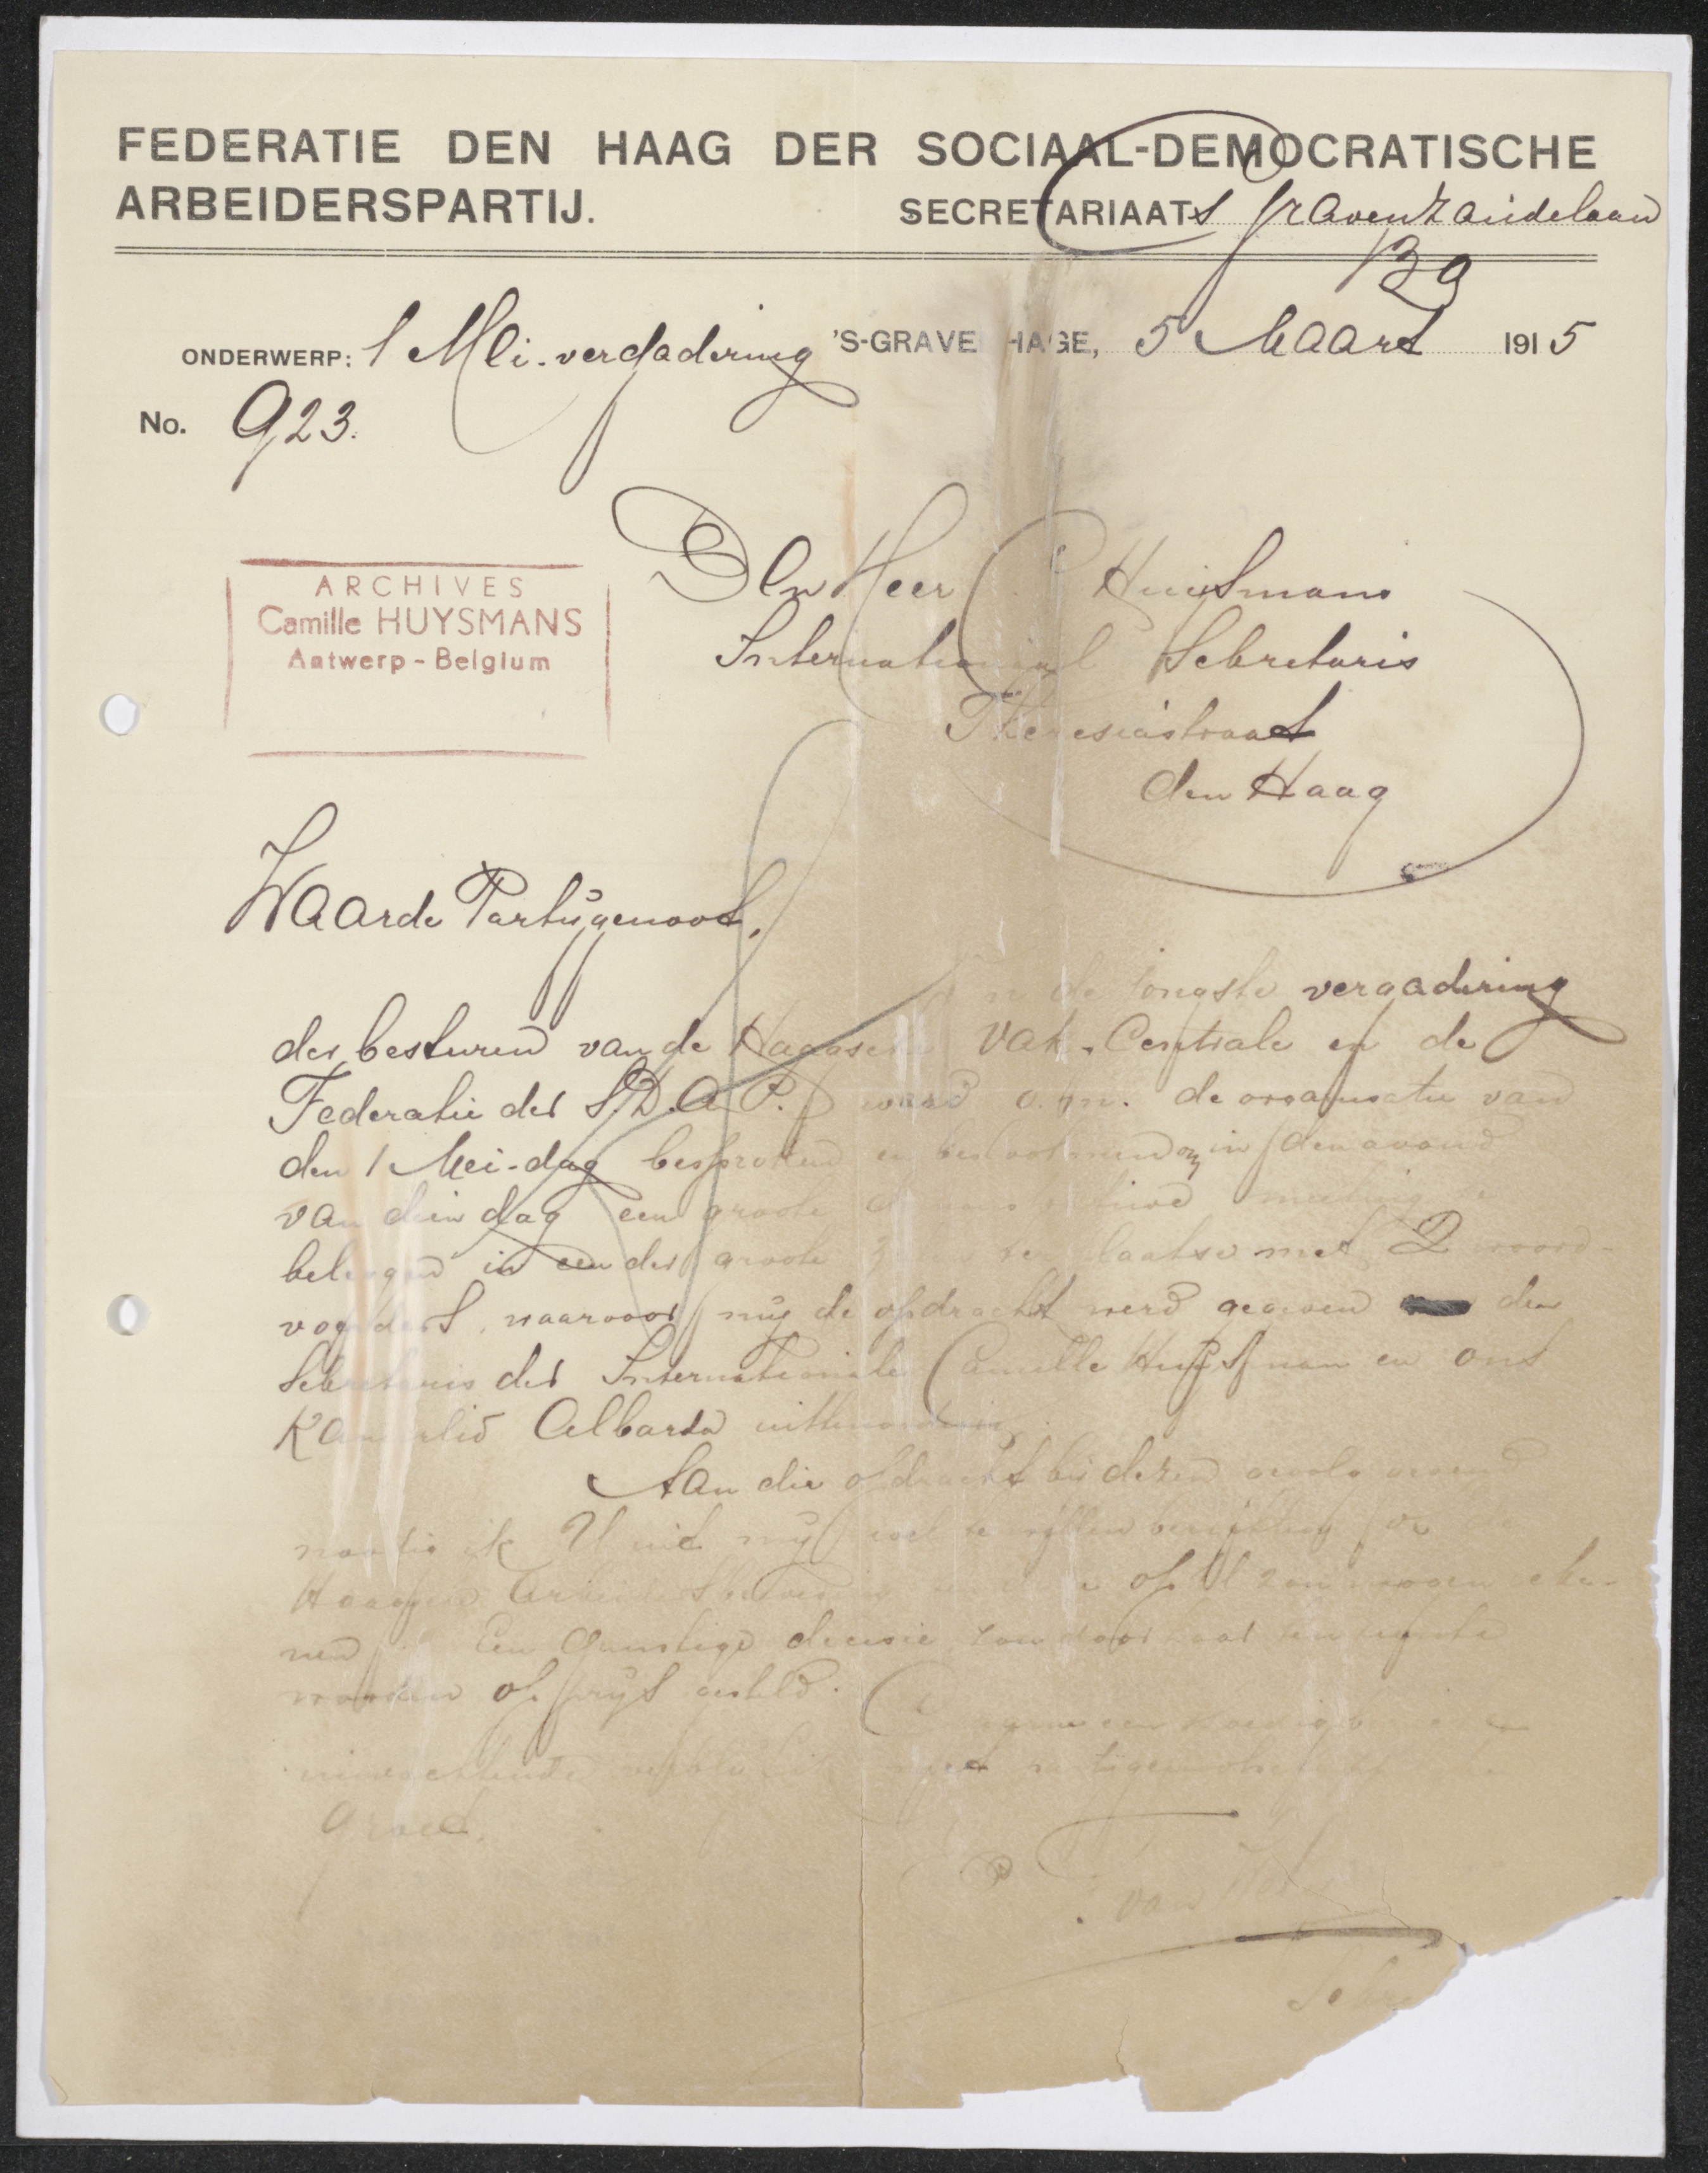 FEDERATIE DEN HAAG DER SOCIAAL-DEMOCRATISCHE
ARBEIDERSPARTIJ. SECRETARIAAT s Gravenzandelaan
139
ONDERWERP: 1 Mei-vergadering 'S-GRAVENHAGE, 5 Maart 1915
No. 923.
ARCHIVES
Camille HUYSMANS
Antwerp - Belgium
Den Heer C Huijsmans
Internationaal Sekretaris
Theresiastraat
den Haag
Waarde Partijgenoot,
In de jongste vergadering
der besturen van de Haagsche Vak-Centrale en de
Federatie der S.D.A.P. werd o.m. de organisatie van
den 1 Mei-dag besproken en besloten om in den avond
van dien dag een groote meeting te
beleggen in een der groote ter plaatse met 2 woord-
voerders, waarvoor mij de opdracht werd gegeven den
Sekretaris der Internationale Camille Huijsman en ons
Kamerlid Albarda uittenoodigen.
Aan die opdracht bij dezen gevolg gevend
noodig ik U uit mij wel te willen berichten
Haagsche Arbeidersbeweging op U zou mogen reke-
nen. Een gunstige decisie zou door haar ten zeerste
worden op prijs gesteld.
een spoedig
inwachtende met partijgenootschappelijke
groet.
P. van
Sekr